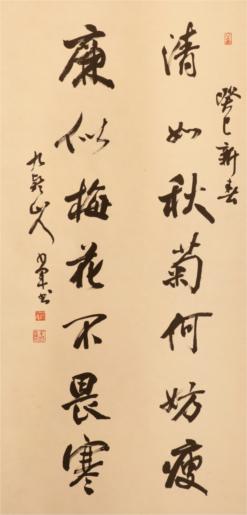 癸巳新春
清如秋菊何妨瘦
廉似梅花不畏寒
九疑山人